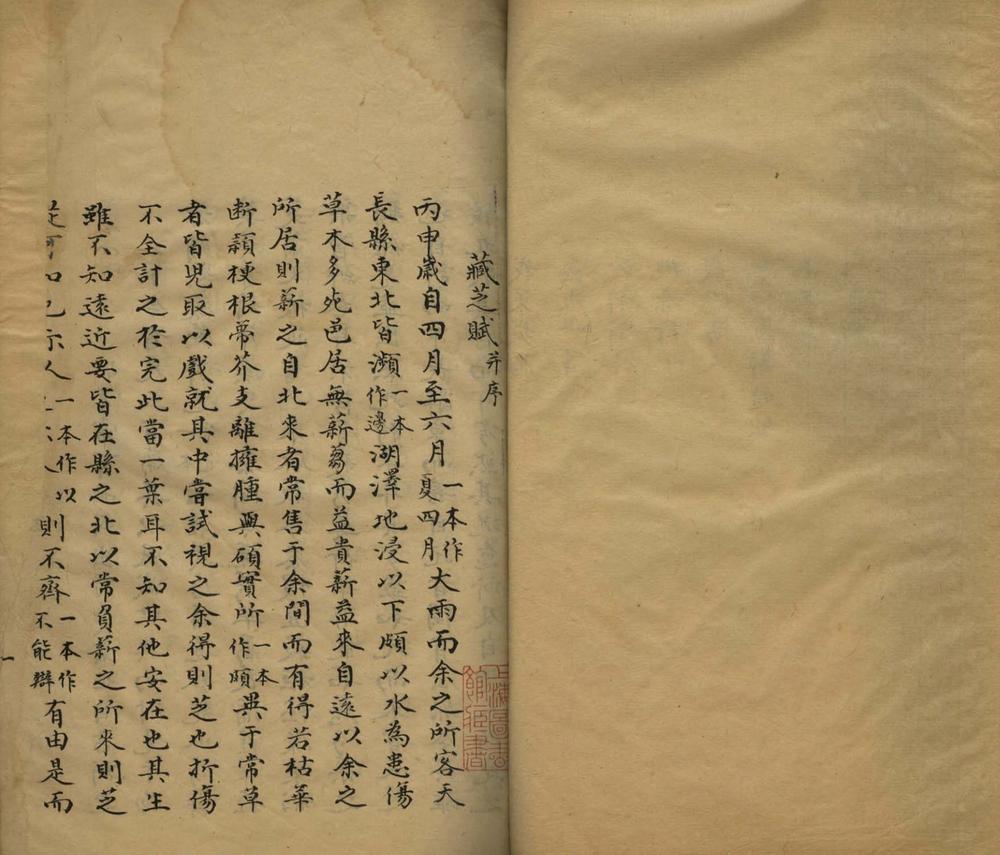 藏芝賦并序
丙申歲自四月至六月一本作夏四月大雨而余之所客天
長縣東北皆瀕一本作邊湖澤地浸以下頗以水為患傷
草木多死邑居無薪芻而益貴薪益来自遠以余之
所居則薪之自北来者常售于余間而有得若枯華
断頴梗根蔕芥支離擁腫與碩實所一本作頗異于常草
者皆児取以戲就其中嘗試視之余得則芝也折傷
不全計之於完此當一葉耳不知其他安在也其生
雖不知遠近要皆在縣之北以常負薪之所来則芝
人一本作以則不齊一本作不能辯有由是而
一
上海圖書館藏書